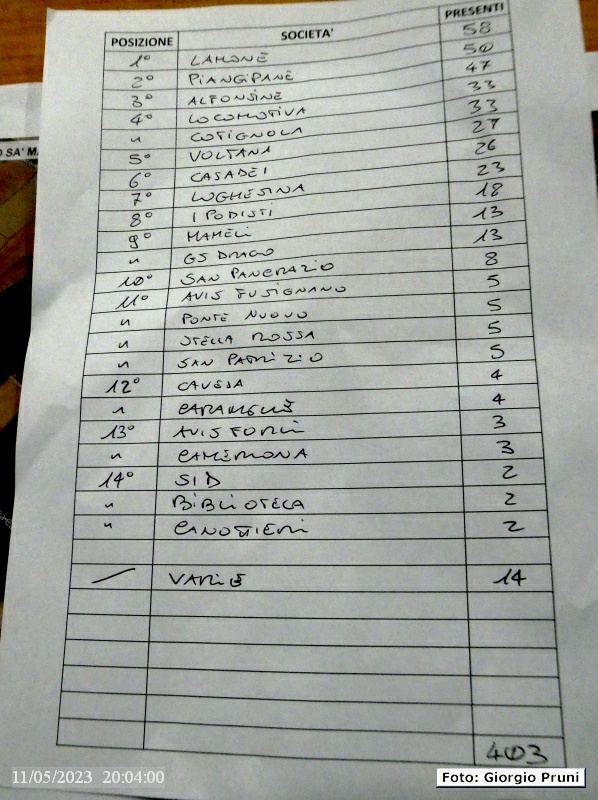 POSIZIONE SOCIETA' PRESENTI
1° LAMONE 58
2° PIANGIPANE 50
3° ALFONSINE 47
4° LOCOMOTIVA 33
" COTIGNOLA 33
5° VOLTANA 27
6° CASADEI 26
7° LUGHESINA 23
8° I PODISTI 18
9° MAMELI 13
" GS DRAGO 13
10° SAN PANCRAZIO 8
11° AVIS FUSIGNANO 5
" PONTE NUOVO 5
" STELLA ROSSA 5
" SAN PATRIZIO 5
12° CAVEJA 4
" 4
13° AVIS FORLI 3
" CAMERLONA 3
14° SID 2
" BIBLIOTECA 2
" CANOTTIERI 2
VARIE 14
403
O SA' MA
11/05/2023 20:04:00
Foto: Giorgio Pruni